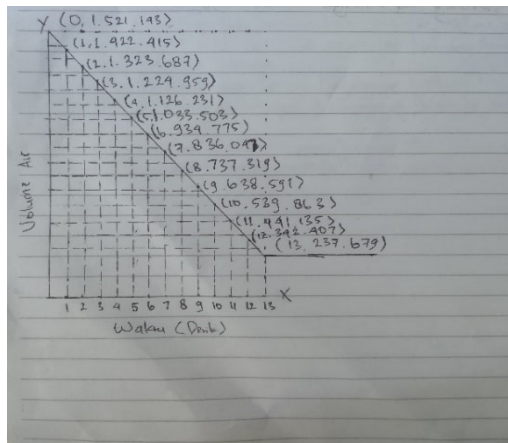 Y (0, 1.521.143)
(1, 1.422.415)
(2. 1. 323. 687)
(3. 1. 224. 959)
(4. 1. 126. 231)
(5. 1. 033. 503)
(6. 934. 775)
(7. 836. 047)
(8. 737. 319)
(9. 638. 591)
(10. 539. 863)
(11. 441. 135)
(12. 342. 407)
(13. 237. 679)
Volume Air
1 2 3 4 5 6 7 8 9 10 11 12 13 X
Waktu (Detik)